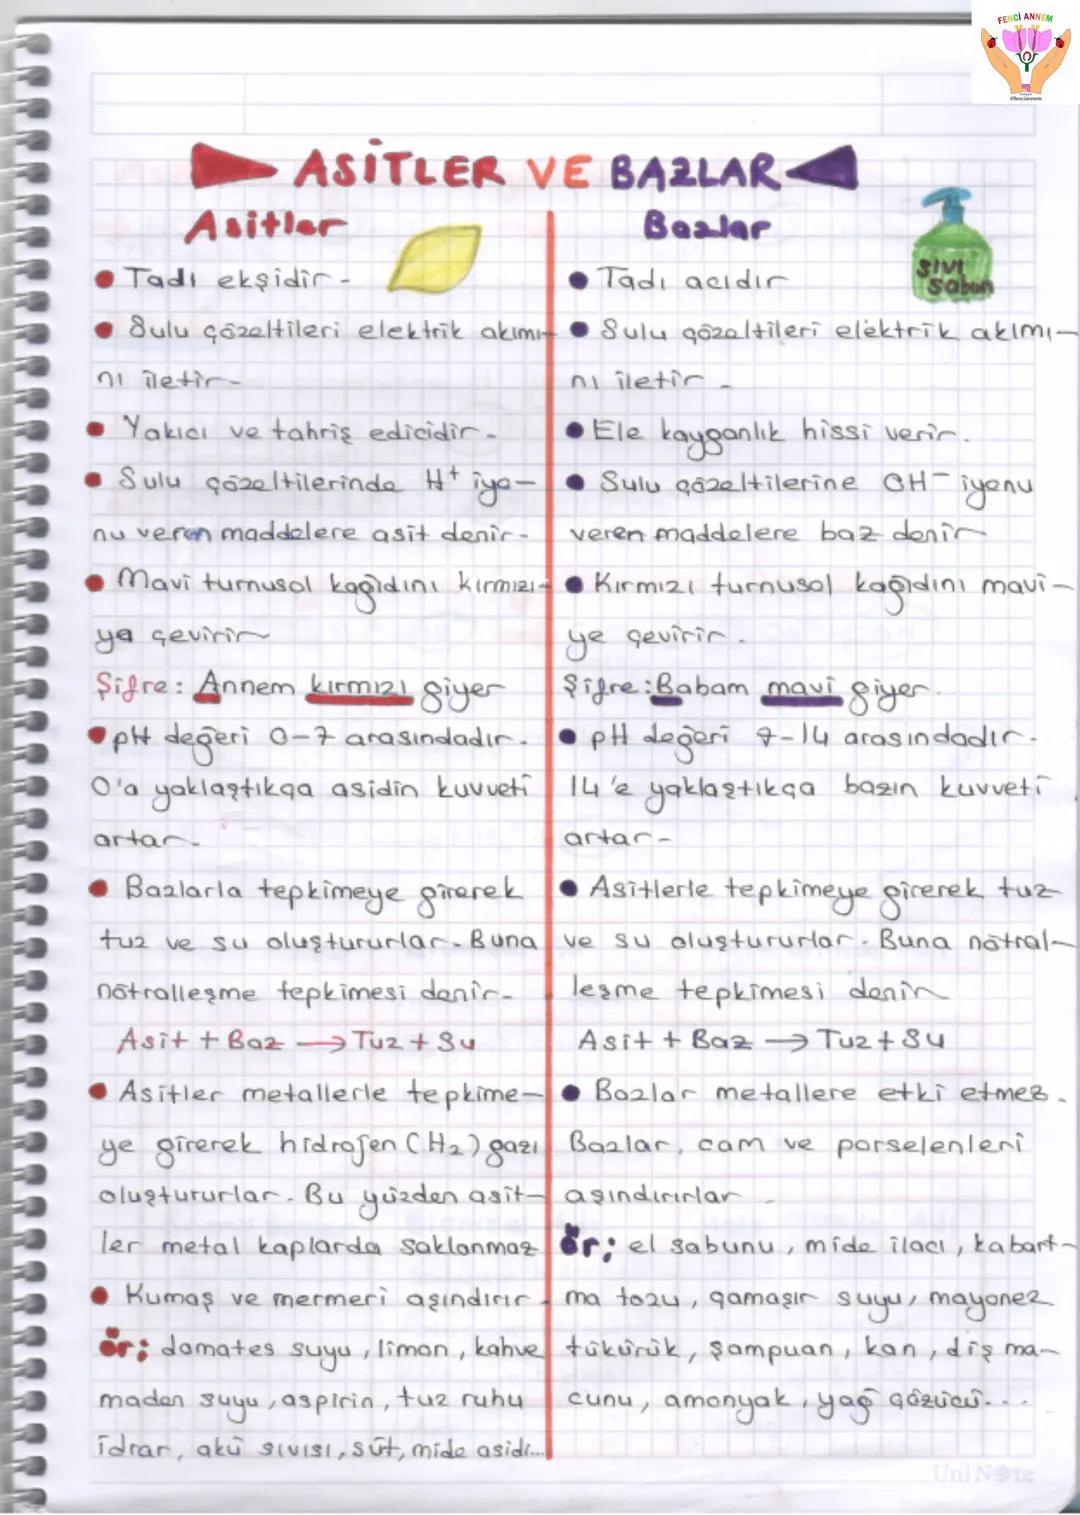 FENCİ ANNEM
@fenciannem
ASİTLER VE BAZLAR
Asitler
Tadı ekşidir.
Sulu çözeltileri elektrik akımı-
nı iletir.
Yakıcı ve tahriş edicidir.
Sulu çözeltilerinde H+ iyo-
nu veren maddelere asit denir.
Mavi turnusol kağıdını kırmızı-
ya çevirir
Şifre: Annem kırmızı giyer
pH değeri 0-7 arasındadır.
0'a yaklaştıkça asidin kuvveti
artar.
Bazlarla tepkimeye girerek
tuz ve su oluştururlar. Buna
nötralleşme tepkimesi denir.
Asit + Baz → Tuz + Su
Asitler metallerle tepkime-
ye girerek hidrojen (H₂) gazı
oluştururlar. Bu yüzden asit-
ler metal kaplarda saklanmaz
Kumaş ve mermeri aşındırır.
ör; domates suyu, limon, kahve
maden suyu, aspirin, tuz ruhu
idrar, akü sıvısı, süt, mide asidi...
Bazlar
SIVI
Sabun
Tadı acıdır
Sulu çözeltileri elektrik akımı-
nı iletir.
Ele kayganlık hissi verir.
Sulu çözeltilerine OH- iyonu
veren maddelere baz denir
Kırmızı turnusol kağıdını mavi-
ye çevirir.
Şifre: Babam mavi giyer.
pH değeri 7-14 arasındadır.
14'e yaklaştıkça bazın kuvveti
artar.
Asitlerle tepkimeye girerek tuz
ve su oluştururlar. Buna nötral-
leşme tepkimesi denir
Asit + Baz → Tuz + Su
Bazlar metallere etki etmez.
Bazlar, cam ve porselenleri
aşındırırlar.
ör; el sabunu, mide ilacı, kabart-
ma tozu, çamaşır suyu, mayonez
tükürük, şampuan, kan, diş ma-
cunu, amonyak, yağ çözücü...
Uni Note